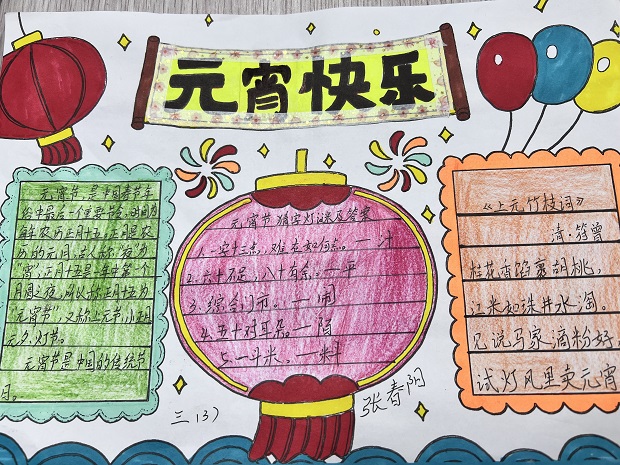 元宵快乐
元宵节是中国春节年
俗中最后一个重要节令。时间为
每年农历正月十五。正月是农
历的元月,古人称"夜"为
"宵",正月十五是一年中第一个
月圆之夜,所以称正月十五为
"元宵节",又称上元节、小正月、
元夕、灯节。
元宵节是中国的传统节
日。
元宵节猜字灯谜及答案
1.一字十三点,难在如何点。—汁
2.六十不足,八十有余。—平
3.综合门市。—闹
4.五十对耳朵。—陌
5.一斗米。—料
三(3)
张春阳
《上元竹枝词》
清·符曾
桂花香馅裹胡桃,
江米如珠井水淘。
见说马家滴粉好,
试灯风里卖元宵